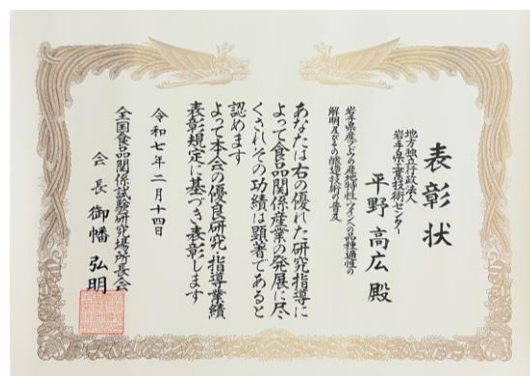 表彰状
地方独立行政法人
岩手県工業技術センター
平野高広殿
岩手県産ぶどうの産地特性とワインへの品種適性の
解明及びその醸造技術の普及
あなたは右の優れた研究指導に
よって食品関係産業の発展に尽
くされその功績は顕著であると
認めます
よって本会の優良研究・指導業績
表彰規定に基づき表彰します
令和七年二月十四日
全国食品関係試験研究場所長会
会長御幡弘明